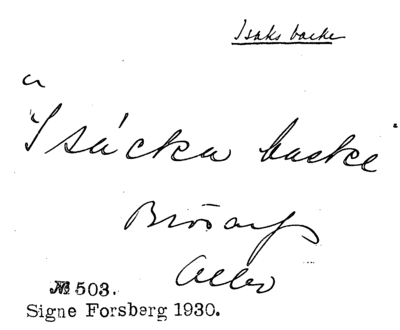 Isaks backe
a
"Isácka backe"
Brösarps
Albo
№ 503.
Signe Forsberg 1930.